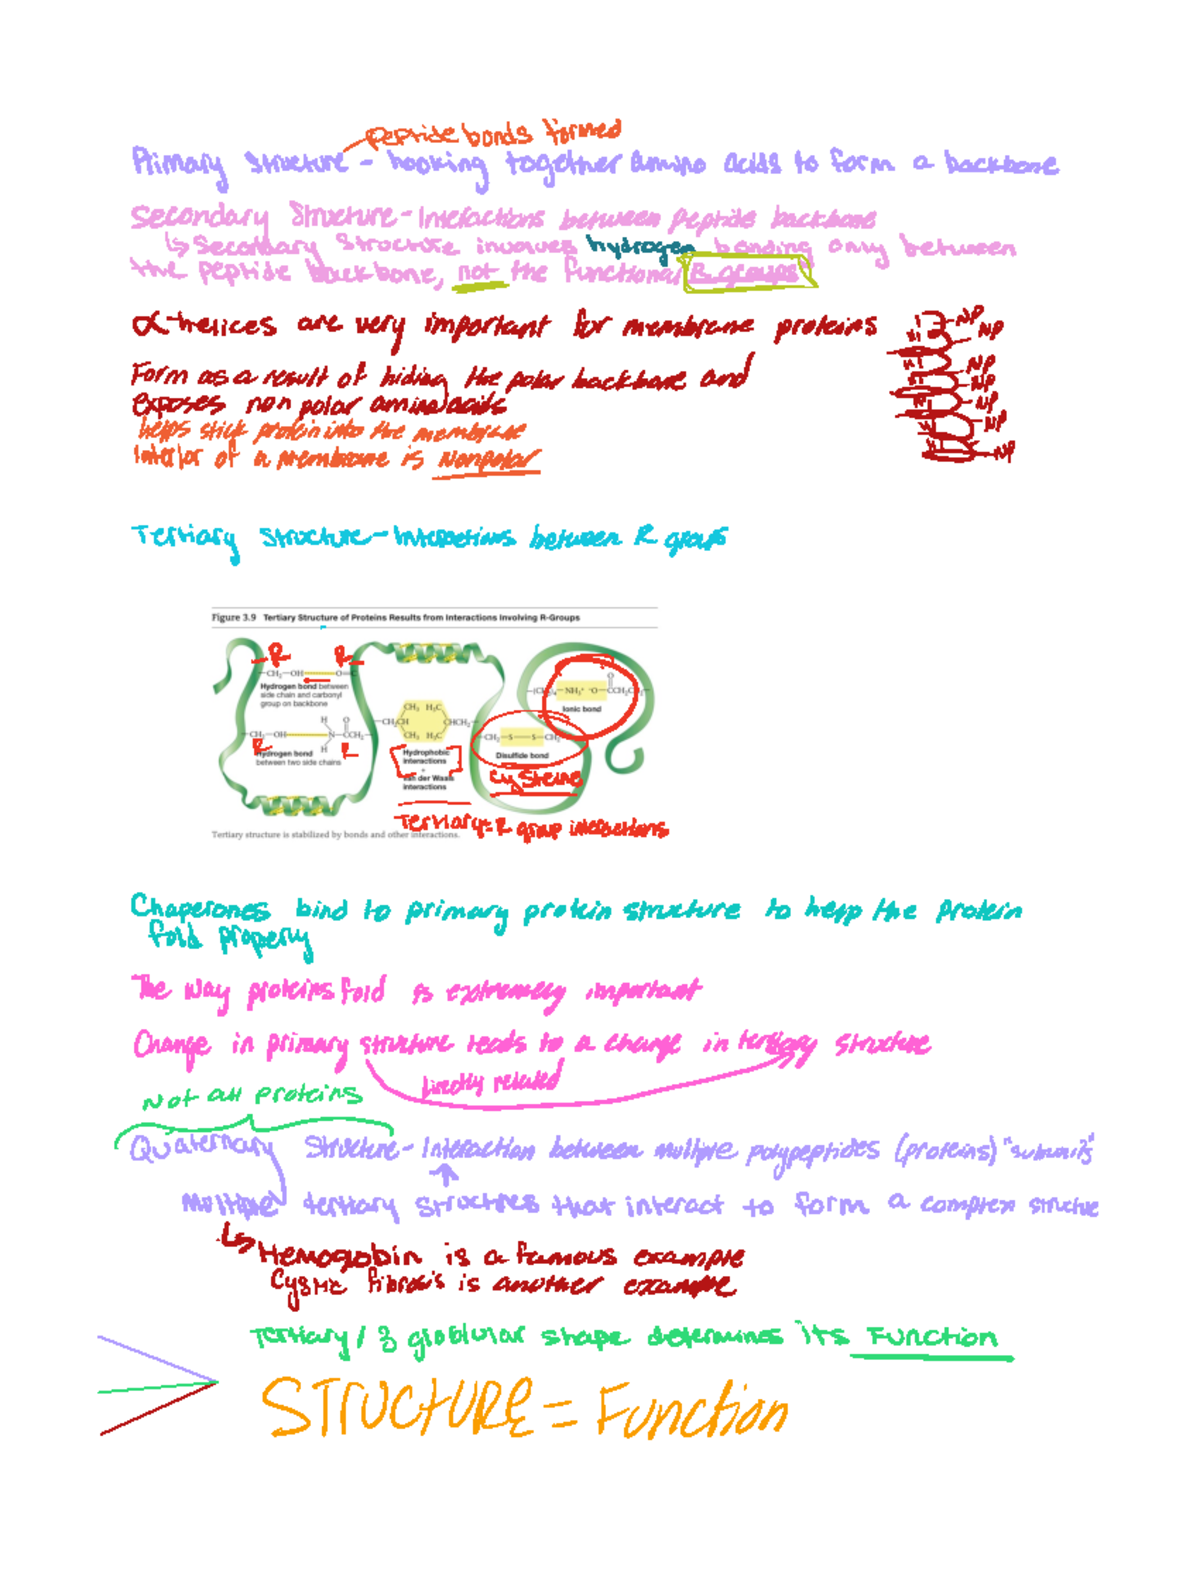 peptide bonds formed
Primary Structure - hooking together amino acids to form a backbone
Secondary Structure - Interactions between peptide backbone
↳ Secondary Structure involves hydrogen bonding only between
the peptide backbone, not the functional R groups
α-helices are very important for membrane proteins
NP
NP
NP
NP
NP
NP
NP
Form as a result of hiding the polar backbone and
exposes non polar amino acids
helps stick protein into the membrane
Interior of a membrane is Nonpolar
Tertiary Structure - Interactions between R groups
Figure 3.9 Tertiary Structure of Proteins Results from Interactions Involving R-Groups
R R
CH₂—OH O=C
Hydrogen bond between
side chain and carbonyl
group on backbone
NH₃⁺ ⁻O—CCH₂CH₂
O
Ionic bond
CH₃ H₃C
CH₂CH CHCH₂
CH₃ H₃C
H O
CH₂—OH N—CCH₂
H
R R
Hydrogen bond
between two side chains
Hydrophobic
interactions
+
van der Waals
interactions
CH₂—S—S—CH₂
Disulfide bond
cysteine
Tertiary = R group interactions
Tertiary structure is stabilized by bonds and other interactions.
Chaperones bind to primary protein structure to help the protein
fold properly
The way proteins fold is extremely important
Change in primary structure leads to a change in tertiary structure
directly related
Not all proteins
Quaternary Structure - Interaction between multiple polypeptides (proteins) "subunits"
Multiple tertiary structures that interact to form a complex structure
↳ Hemoglobin is a famous example
Cystic fibrosis is another example
Tertiary / 3 globular shape determines its Function
STRUCTURE = Function